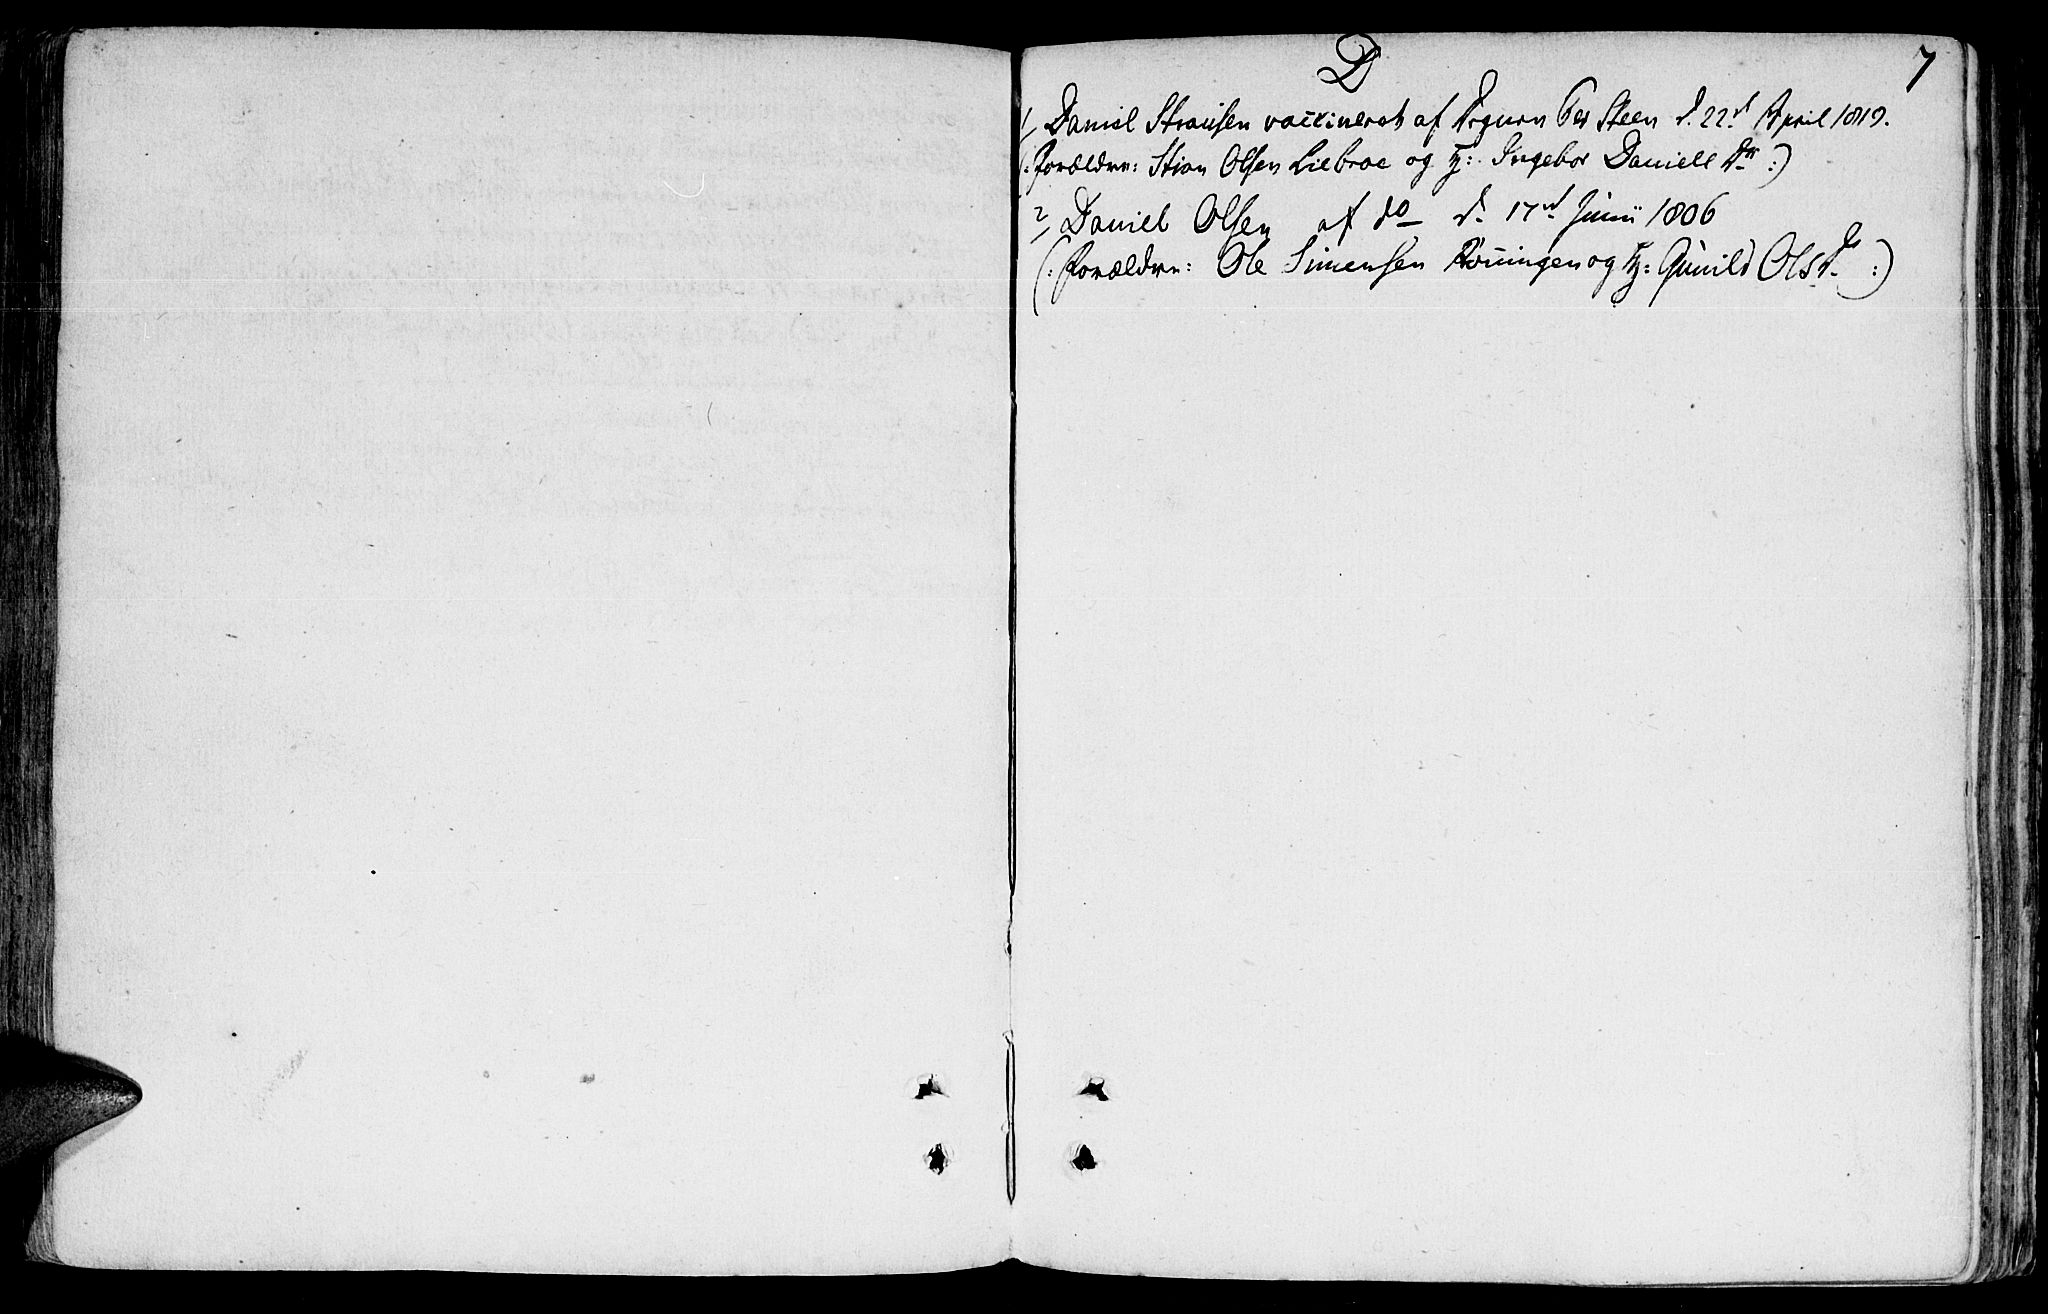 D
7
1/ Daniel Stiansen vaccineret af Per Steen d. 22d April 1819.
(: Forældre: Stian Olsen Liebroe og H: Ingebor Daniels Dr :)
2/ Daniel Olsen af do d. 17d Junii 1806
(: Forældre: Ole Simensen Rönningen og H: Gunild Ols D. :)